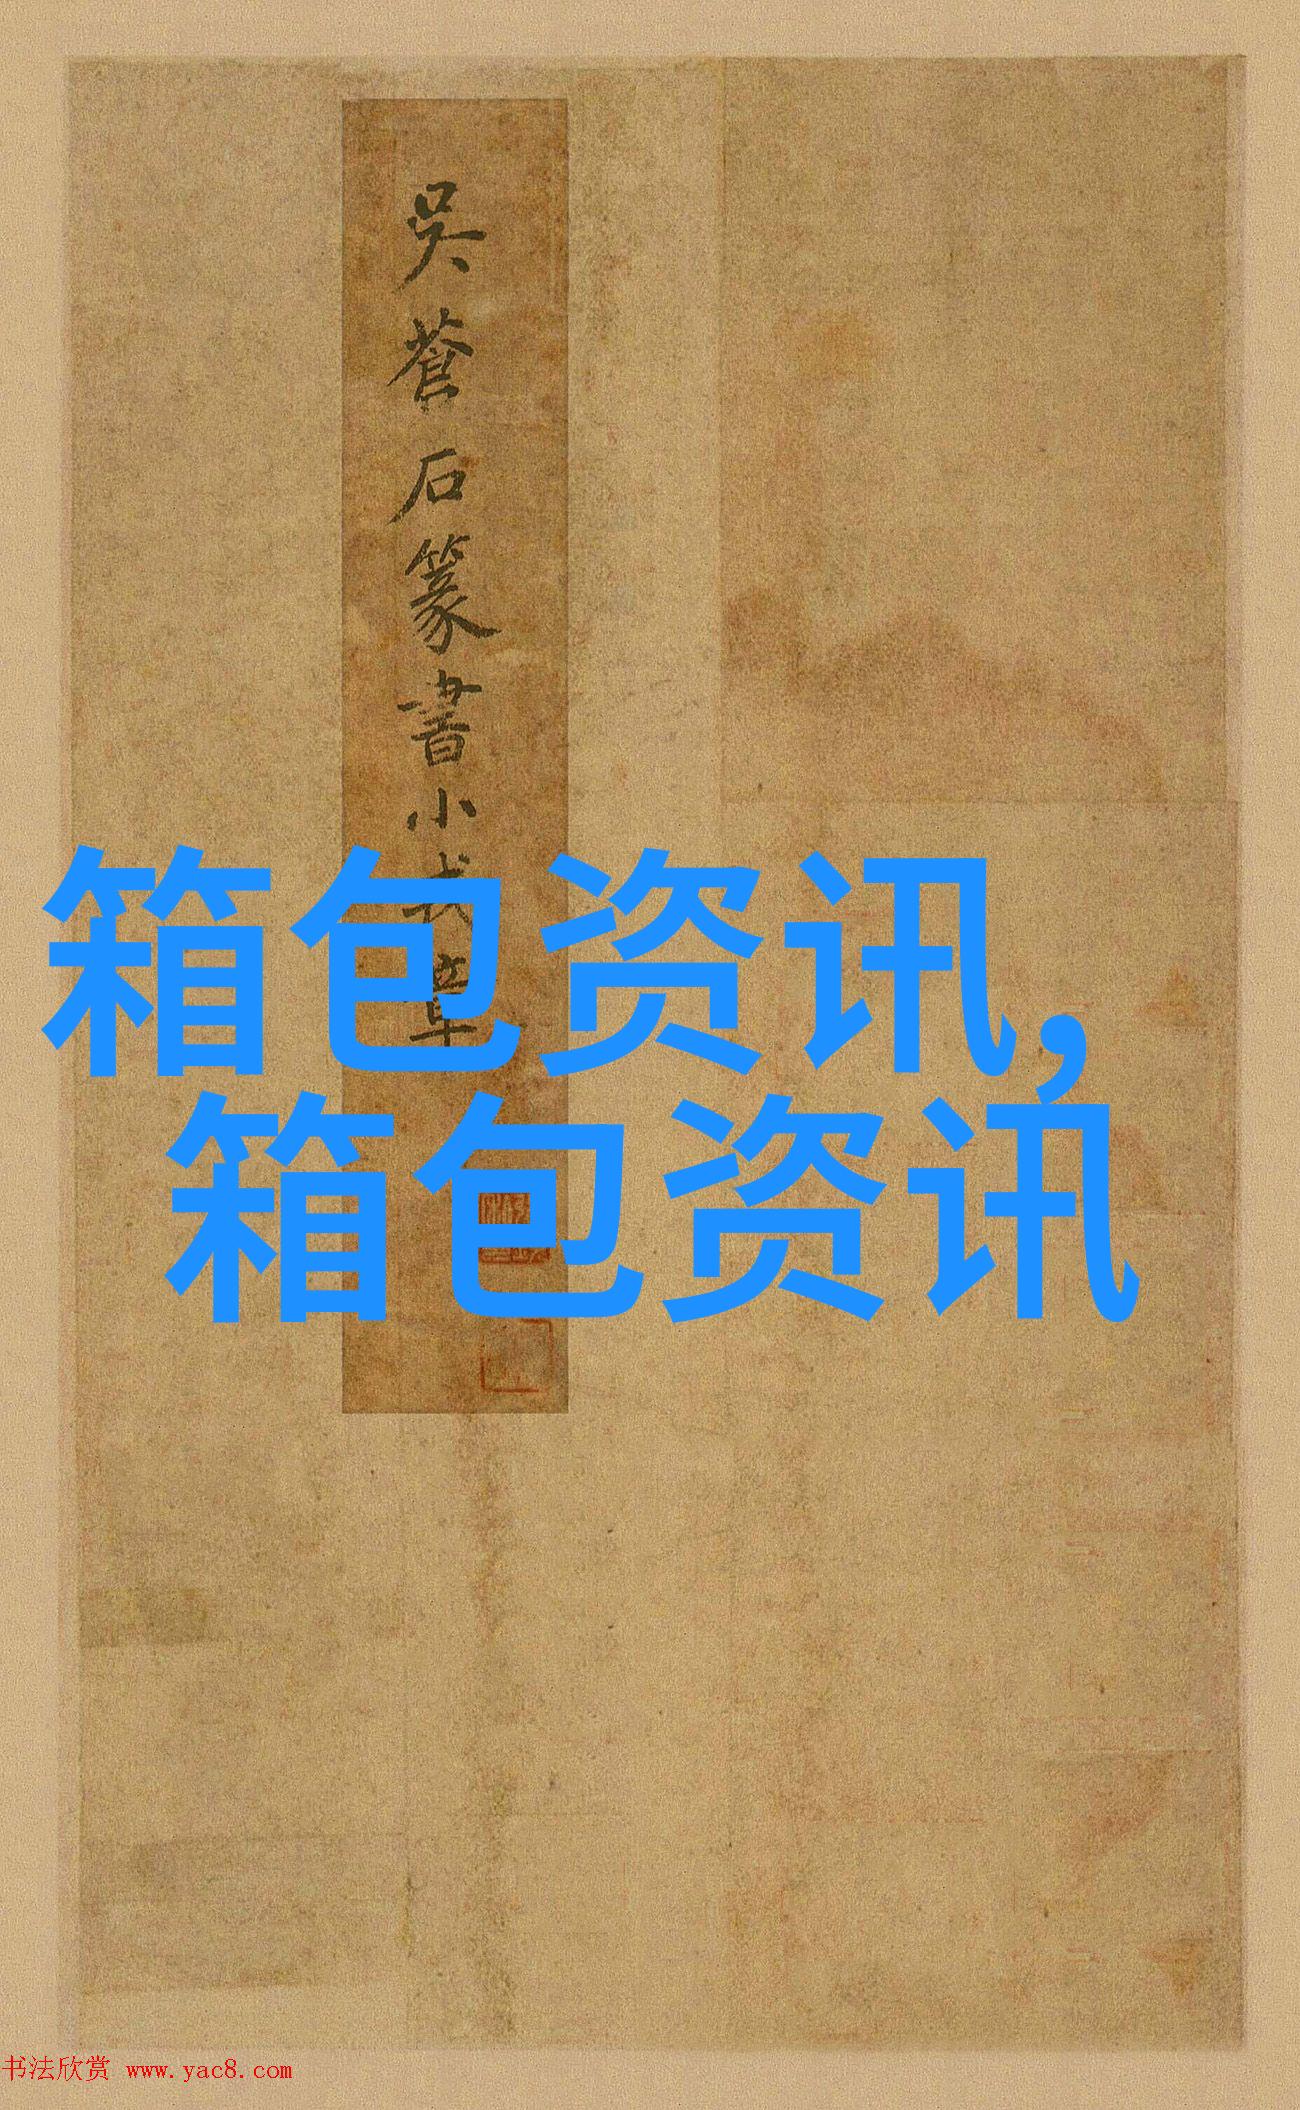 吳蒼石篆書小戎章
箱包资讯,
箱包资讯
书法欣赏 www.yac8.com